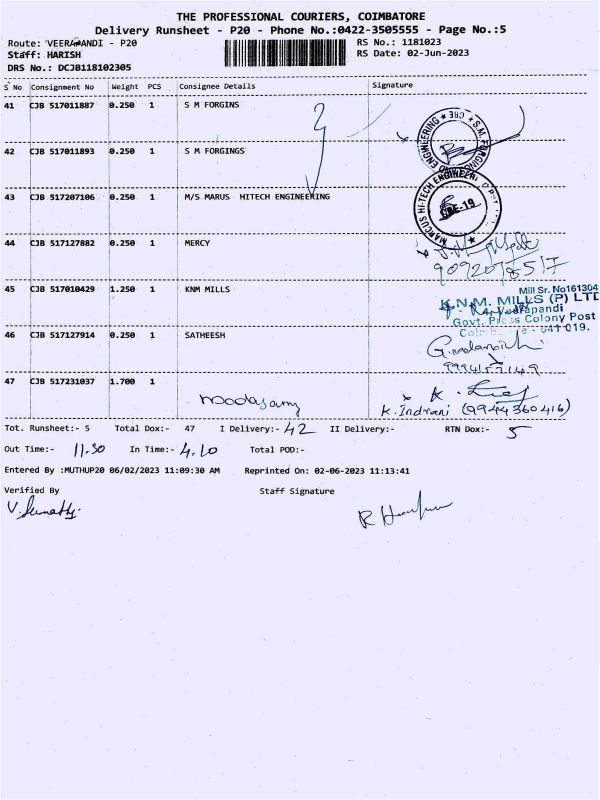 THE PROFESSIONAL COURIERS, COIMBATORE
Delivery Runsheet - P20 - Phone No.:0422-3505555 - Page No.:5
Route: VEERPANDI - P20 RS No.: 1181023
Staff: HARISH RS Date: 02-Jun-2023
DRS No.: DCJB118102305
S No Consignment No Weight PCS Consignee Details Signature
41 CJB 517011887 0.250 1 S M FORGINS
42 CJB 517011893 0.250 1 S M FORGINGS
S.M. FORGING ENGINEERING CBE
43 CJB 517207106 0.250 1 M/S MARUS HITECH ENGINEERING
MARCUS HI-TECH ENGINEERING CBE-19
44 CJB 517127882 0.250 1 MERCY
45 CJB 517010429 1.250 1 KNM MILLS
Mill Sr. No161304
K.N.M. MILLS (P) LTD
Veerapandi
Govt. Press Colony Post
- 641 019.
46 CJB 517127914 0.250 1 SATHEESH
47 CJB 517231037 1.700 1
K. Indrani (9944360416)
Tot. Runsheet:- 5 Total Dox:- 47 I Delivery:- 42 II Delivery:- RTN Dox:- 5
Out Time:- 11.50 In Time:- 4.10 Total POD:-
Entered By :MUTHUP20 06/02/2023 11:09:30 AM Reprinted On: 02-06-2023 11:13:41
Verified By Staff Signature